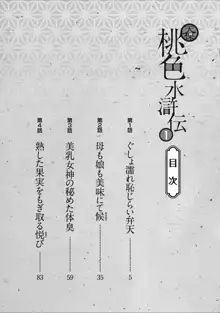 桃色水滸伝
1
目次
第1話
ぐしょ濡れ恥じらい弁天
5
第2話
母も娘も美味にて候
35
第3話
美乳女神の秘めた体臭
59
第4話
熟した果実をもぎ取る悦び
83